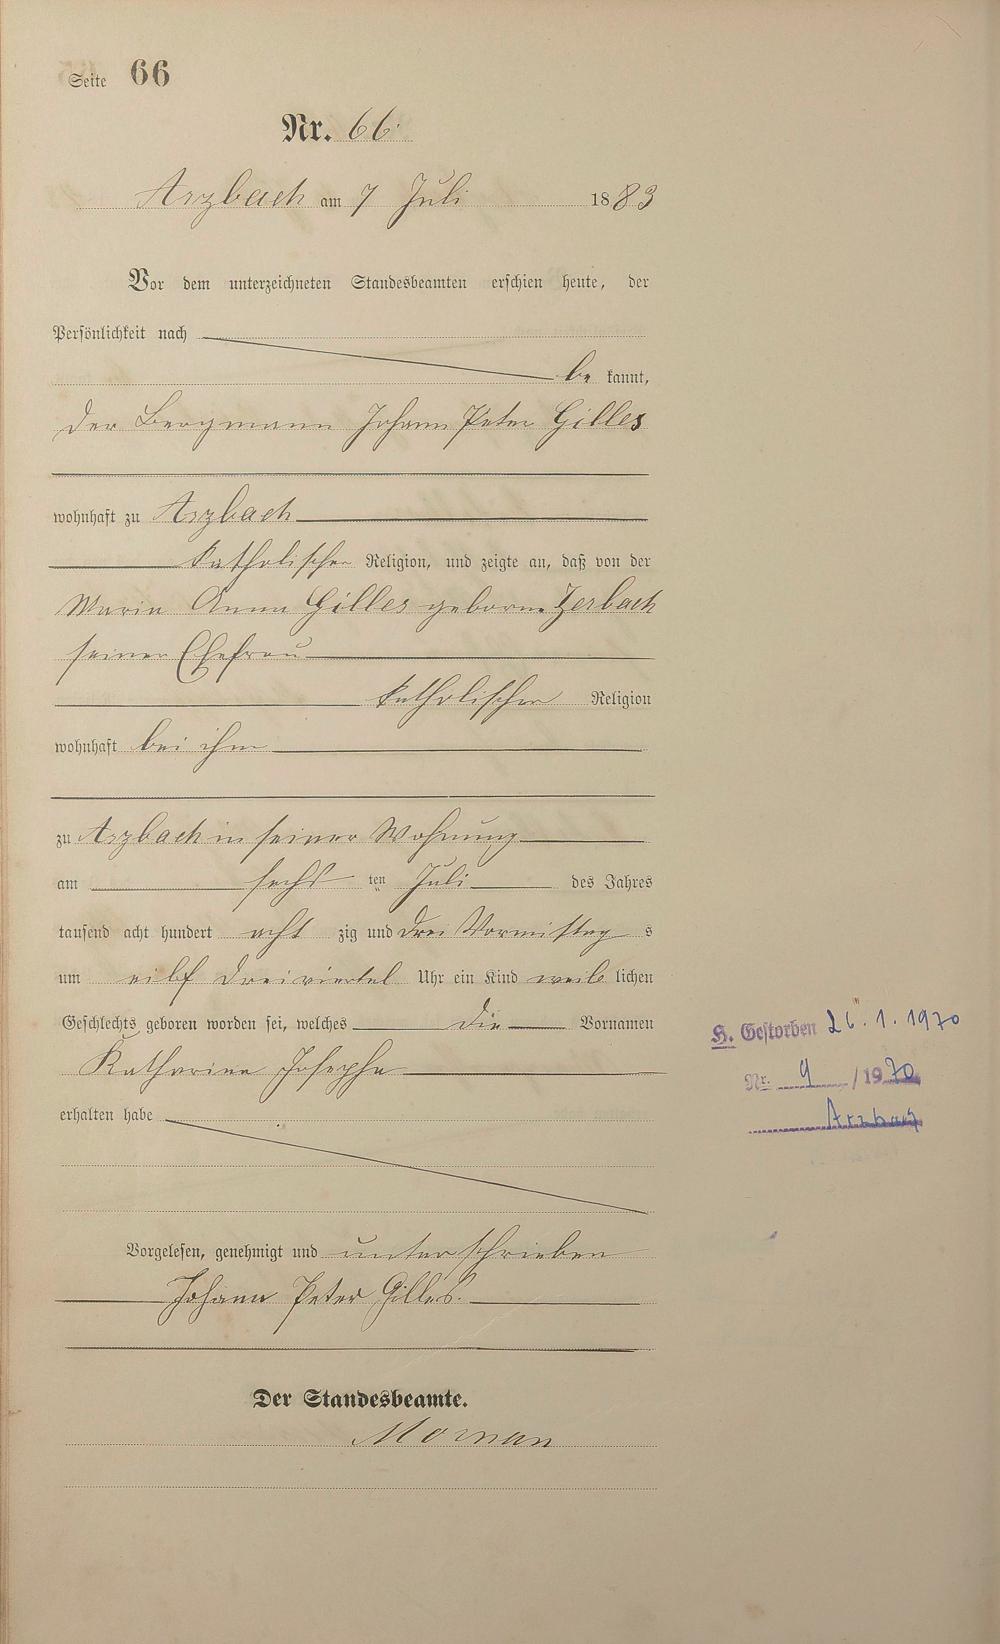 Seite 66
Nr. 66.
Arzbach am 7 Juli 1883
Vor dem unterzeichneten Standesbeamten erschien heute, der
Persönlichkeit nach
be kannt,
der Bergmann Johann Peter Gilles
wohnhaft zu Arzbach
katholischer Religion, und zeigte an, daß von der
Maria Anna Gilles geborne Zerbach
seiner Ehefrau
katholischer Religion
wohnhaft bei ihm
zu Arzbach in seiner Wohnung
am sechs ten Juli des Jahres
tausend acht hundert acht zig und drei Vormittag s
um eilf dreiviertel Uhr ein Kind weib lichen
Geschlechts geboren worden sei, welches die Vornamen
Katharina Josepha
erhalten habe
Vorgelesen, genehmigt und unterschrieben
Johann Peter Gilles.
Der Standesbeamte.
H. Gestorben 26.1.1970
Nr. 9 /1970
Arzbach